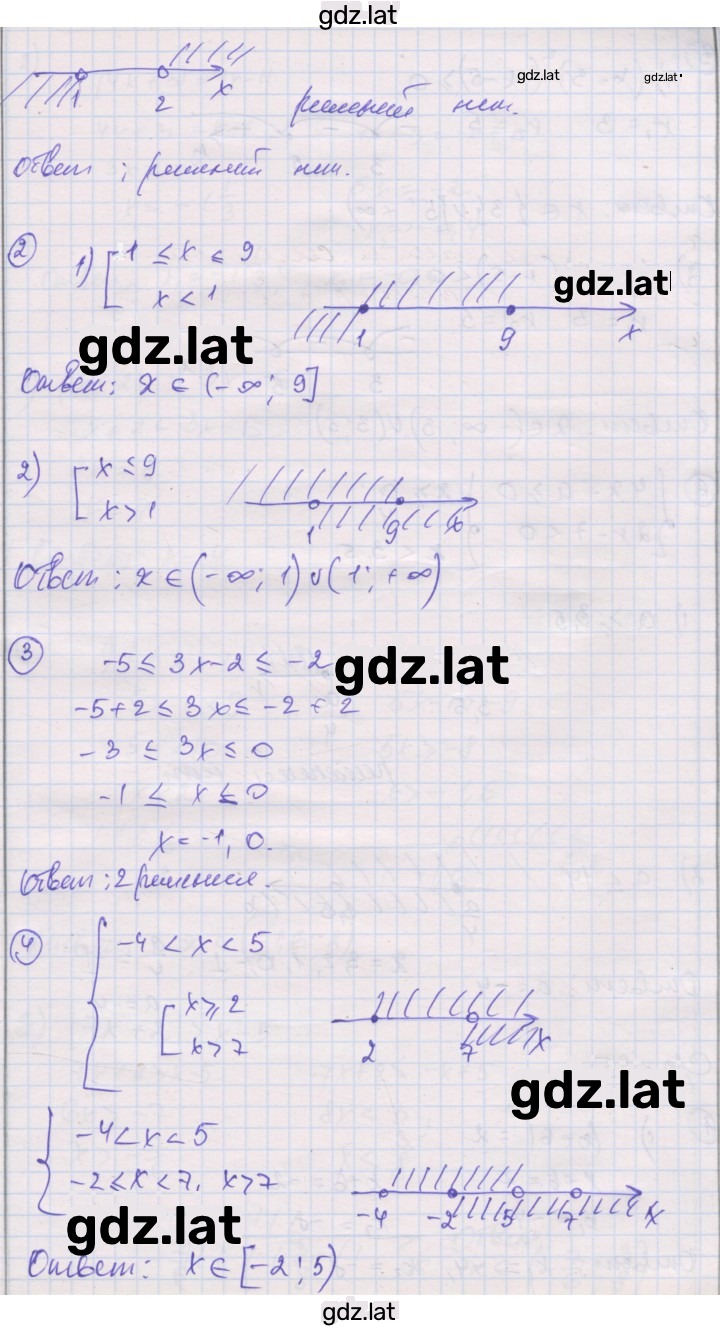 gdz.lat
gdz.lat gdz.lat
1 2 x решений нет.
Ответ: решений нет.
2 1) [ 1 ≤ x ≤ 9
x < 1
gdz.lat
1 9 x
gdz.lat
Ответ: x ∈ (-∞; 9]
2) [ x ≤ 9
x > 1
1 9 x
Ответ: x ∈ (-∞; 1) ∪ (1; +∞)
3 -5 ≤ 3x-2 ≤ -2
gdz.lat
-5+2 ≤ 3x ≤ -2+2
-3 ≤ 3x ≤ 0
-1 ≤ x ≤ 0
x = -1, 0.
Ответ: 2 решения.
4 { -4 < x < 5
[ x ≥ 2
x > 7
2 7 x
gdz.lat
{ -4 < x < 5
-2 ≤ x < 7, x > 7
-4 -2 5 7 x
gdz.lat
Ответ: x ∈ [-2; 5)
gdz.lat